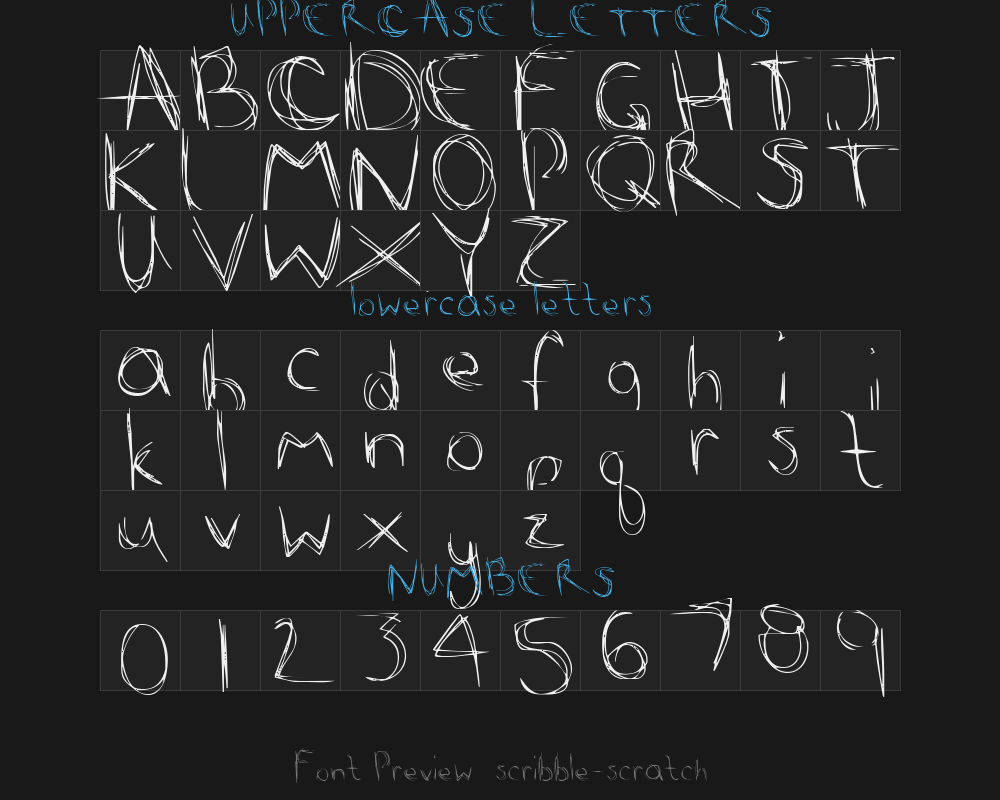 UPPERCASE LETTERS
A B C D E F G H I J
K L M N O P Q R S T
U V W X Y Z
lowercase letters
a b c d e f g h i j
k l m n o p q r s t
u v w x y z
NUMBERS
0 1 2 3 4 5 6 7 8 9
Font Preview scribble-scratch